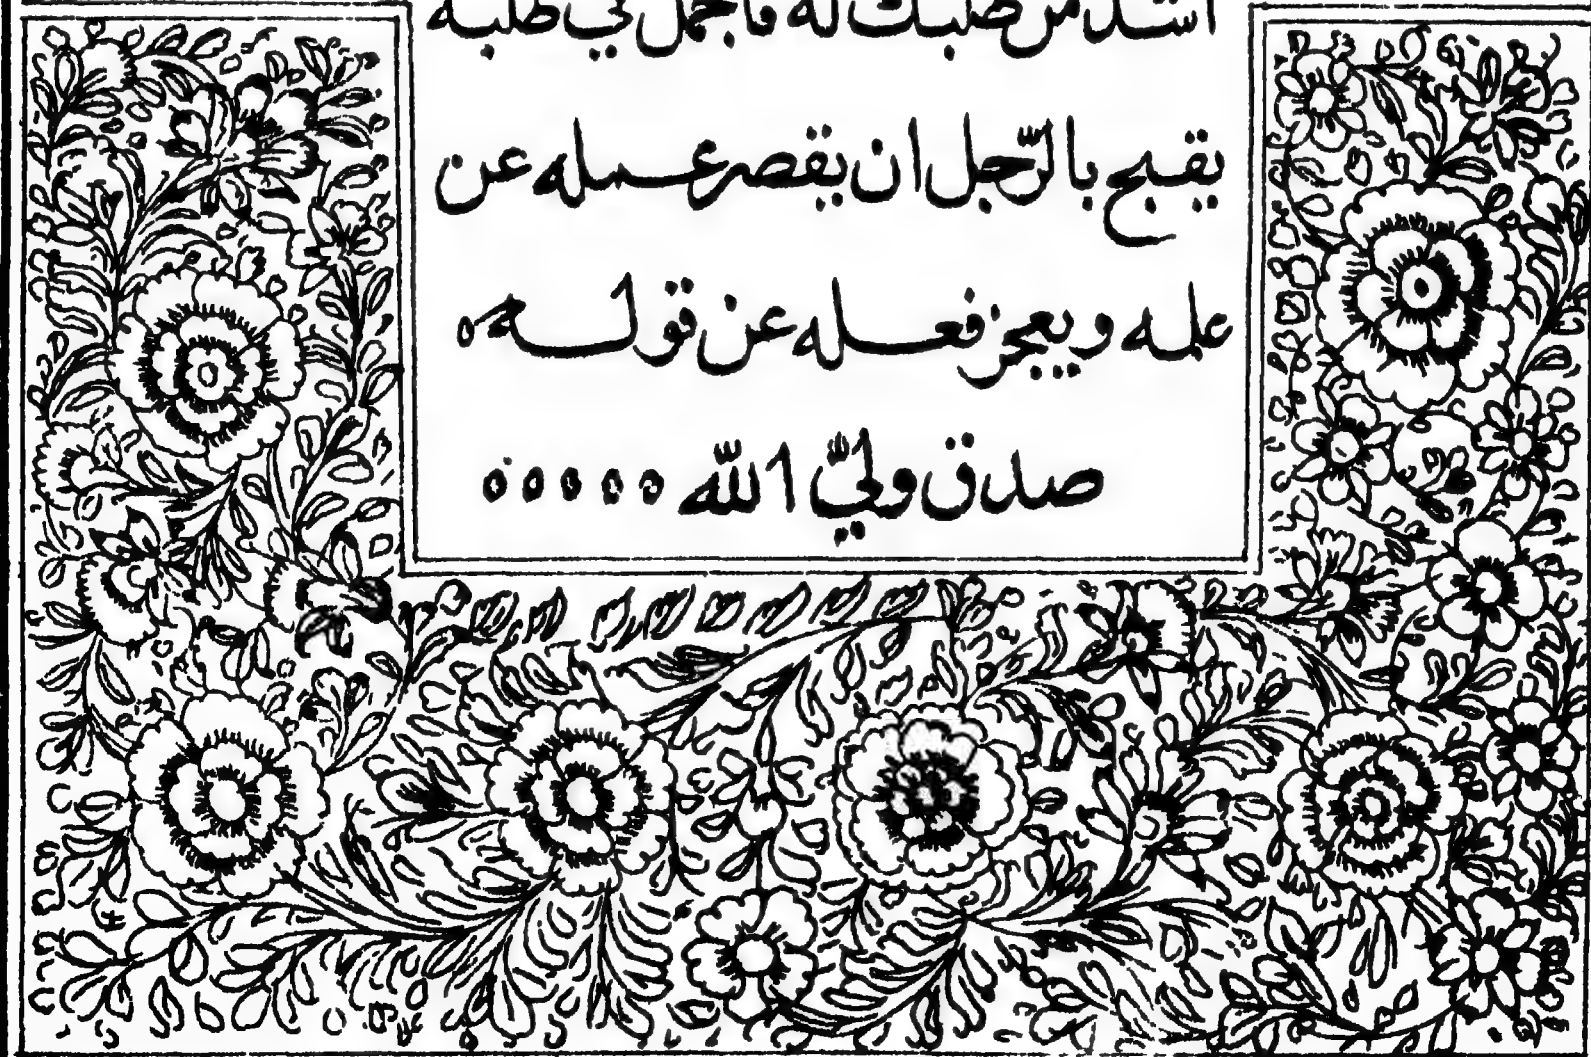 اشد من طلبك له فاجمل في طلبه
يقبح بالرّجل ان يقصر عمله عن
علمه ويعجز فعله عن قوله ه
صدق وليّ الله ه ه ه ه ه